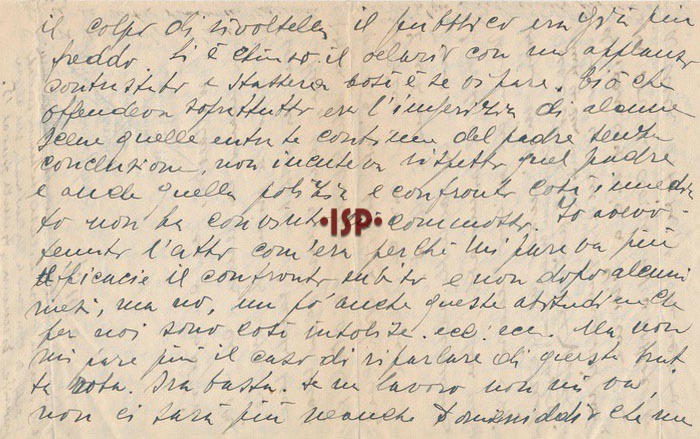 il colpo di rivoltella il pubblico era già più
freddo. Si è chiuso il velario con un applauso
contrastato e stasera così è se vi pare. Ciò che
offendeva soprattutto era l'imperizia di alcune
scene quelle entrate continue del padre senza
conclusione, non incuteva rispetto quel padre
e anche quella polizia e confronto così immedia
to non ha convinto ISP commosso. Io avevo
tenuto l'atto com'era perché mi pareva più
efficacie il confronto subito e non dopo alcuni
mesi, ma no, un po' anche queste abitudini che
per noi sono così insolite. ecc. ecc. Ma non
mi pare più il caso di riparlare di questa brut
ta nota. Ora basta. Se un lavoro non mi va,
non ci sarà più neanche che me